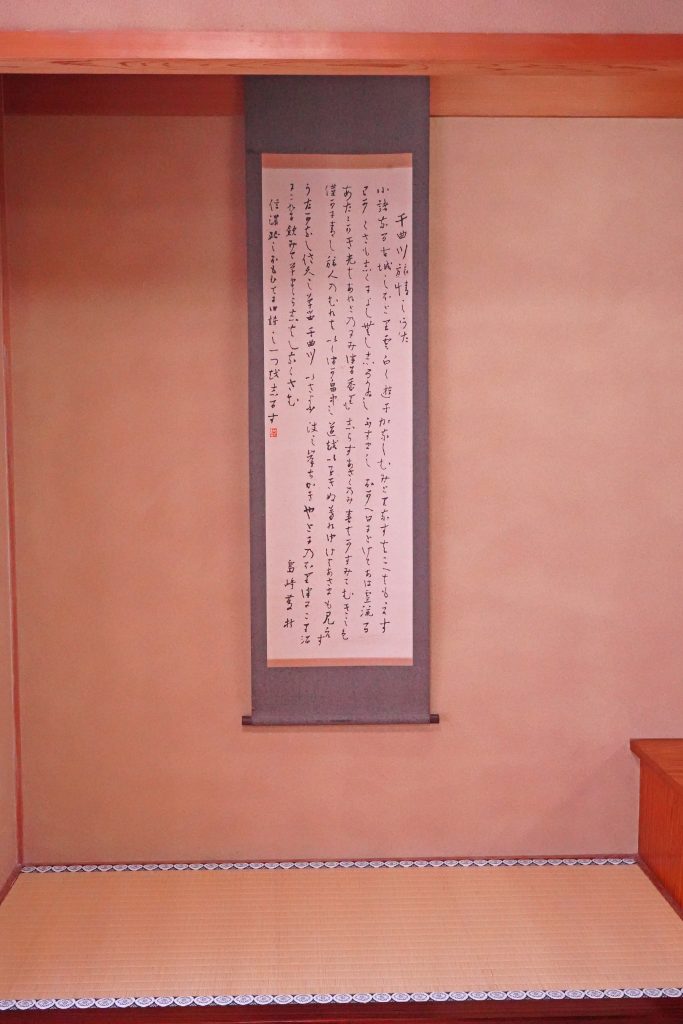 千曲川旅情のうた
小諸なる古城のほとり雲白く遊子かなしむみとりなすはこへもえす
わかくさもしくによしなししろかねのふすまのおかへ日にとけてあは雪流る
あたゝかき光はあれとのにみつる香もしらすあさくのみ春はかすみてむきのいろ
僅かに青し旅人のむれはいくつか畠中の道をいそきぬ暮れゆけはあさまも見えす
うたかなし佐久の草笛千曲川いさよふ波の岸ちかきやとにのほりつにこり酒
にこれる飲みて草まくらしはしなくさむ
島崎藤村
信濃路のおもひてに旧詩の一つをしるす